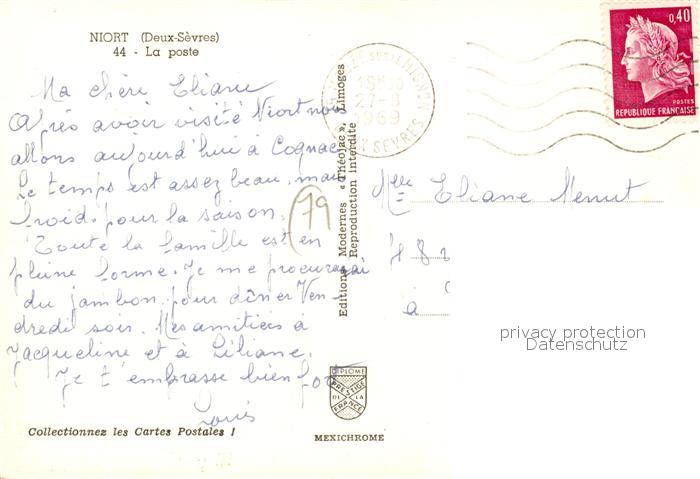 NIORT (Deux-Sèvres)
44 - La poste
Ma chéri Eliane
Après avoir visité Niort nous
allons aujourd'hui à Cognac.
Le temps est assez beau, mais
froid pour la saison.
Toute la famille est en
pleine forme. Je me procurerai
du jambon pour dîner Ven-
dredi soir. Mes amitiés à
Jacqueline et à Liliane.
Je t'embrasse bien fort
Collectionnez les Cartes Postales !
(79)
Editions Modernes « Théojac », Limoges
Reproduction interdite
DIPLOME
PRESTIGE
DE LA
FRANCE
MEXICHROME
SUR LE MIGNON
27-8
1969
SEVRES
0,40
POSTES
REPUBLIQUE FRANÇAISE
Mlle Eliane
48
à
privacy protection
Datenschutz